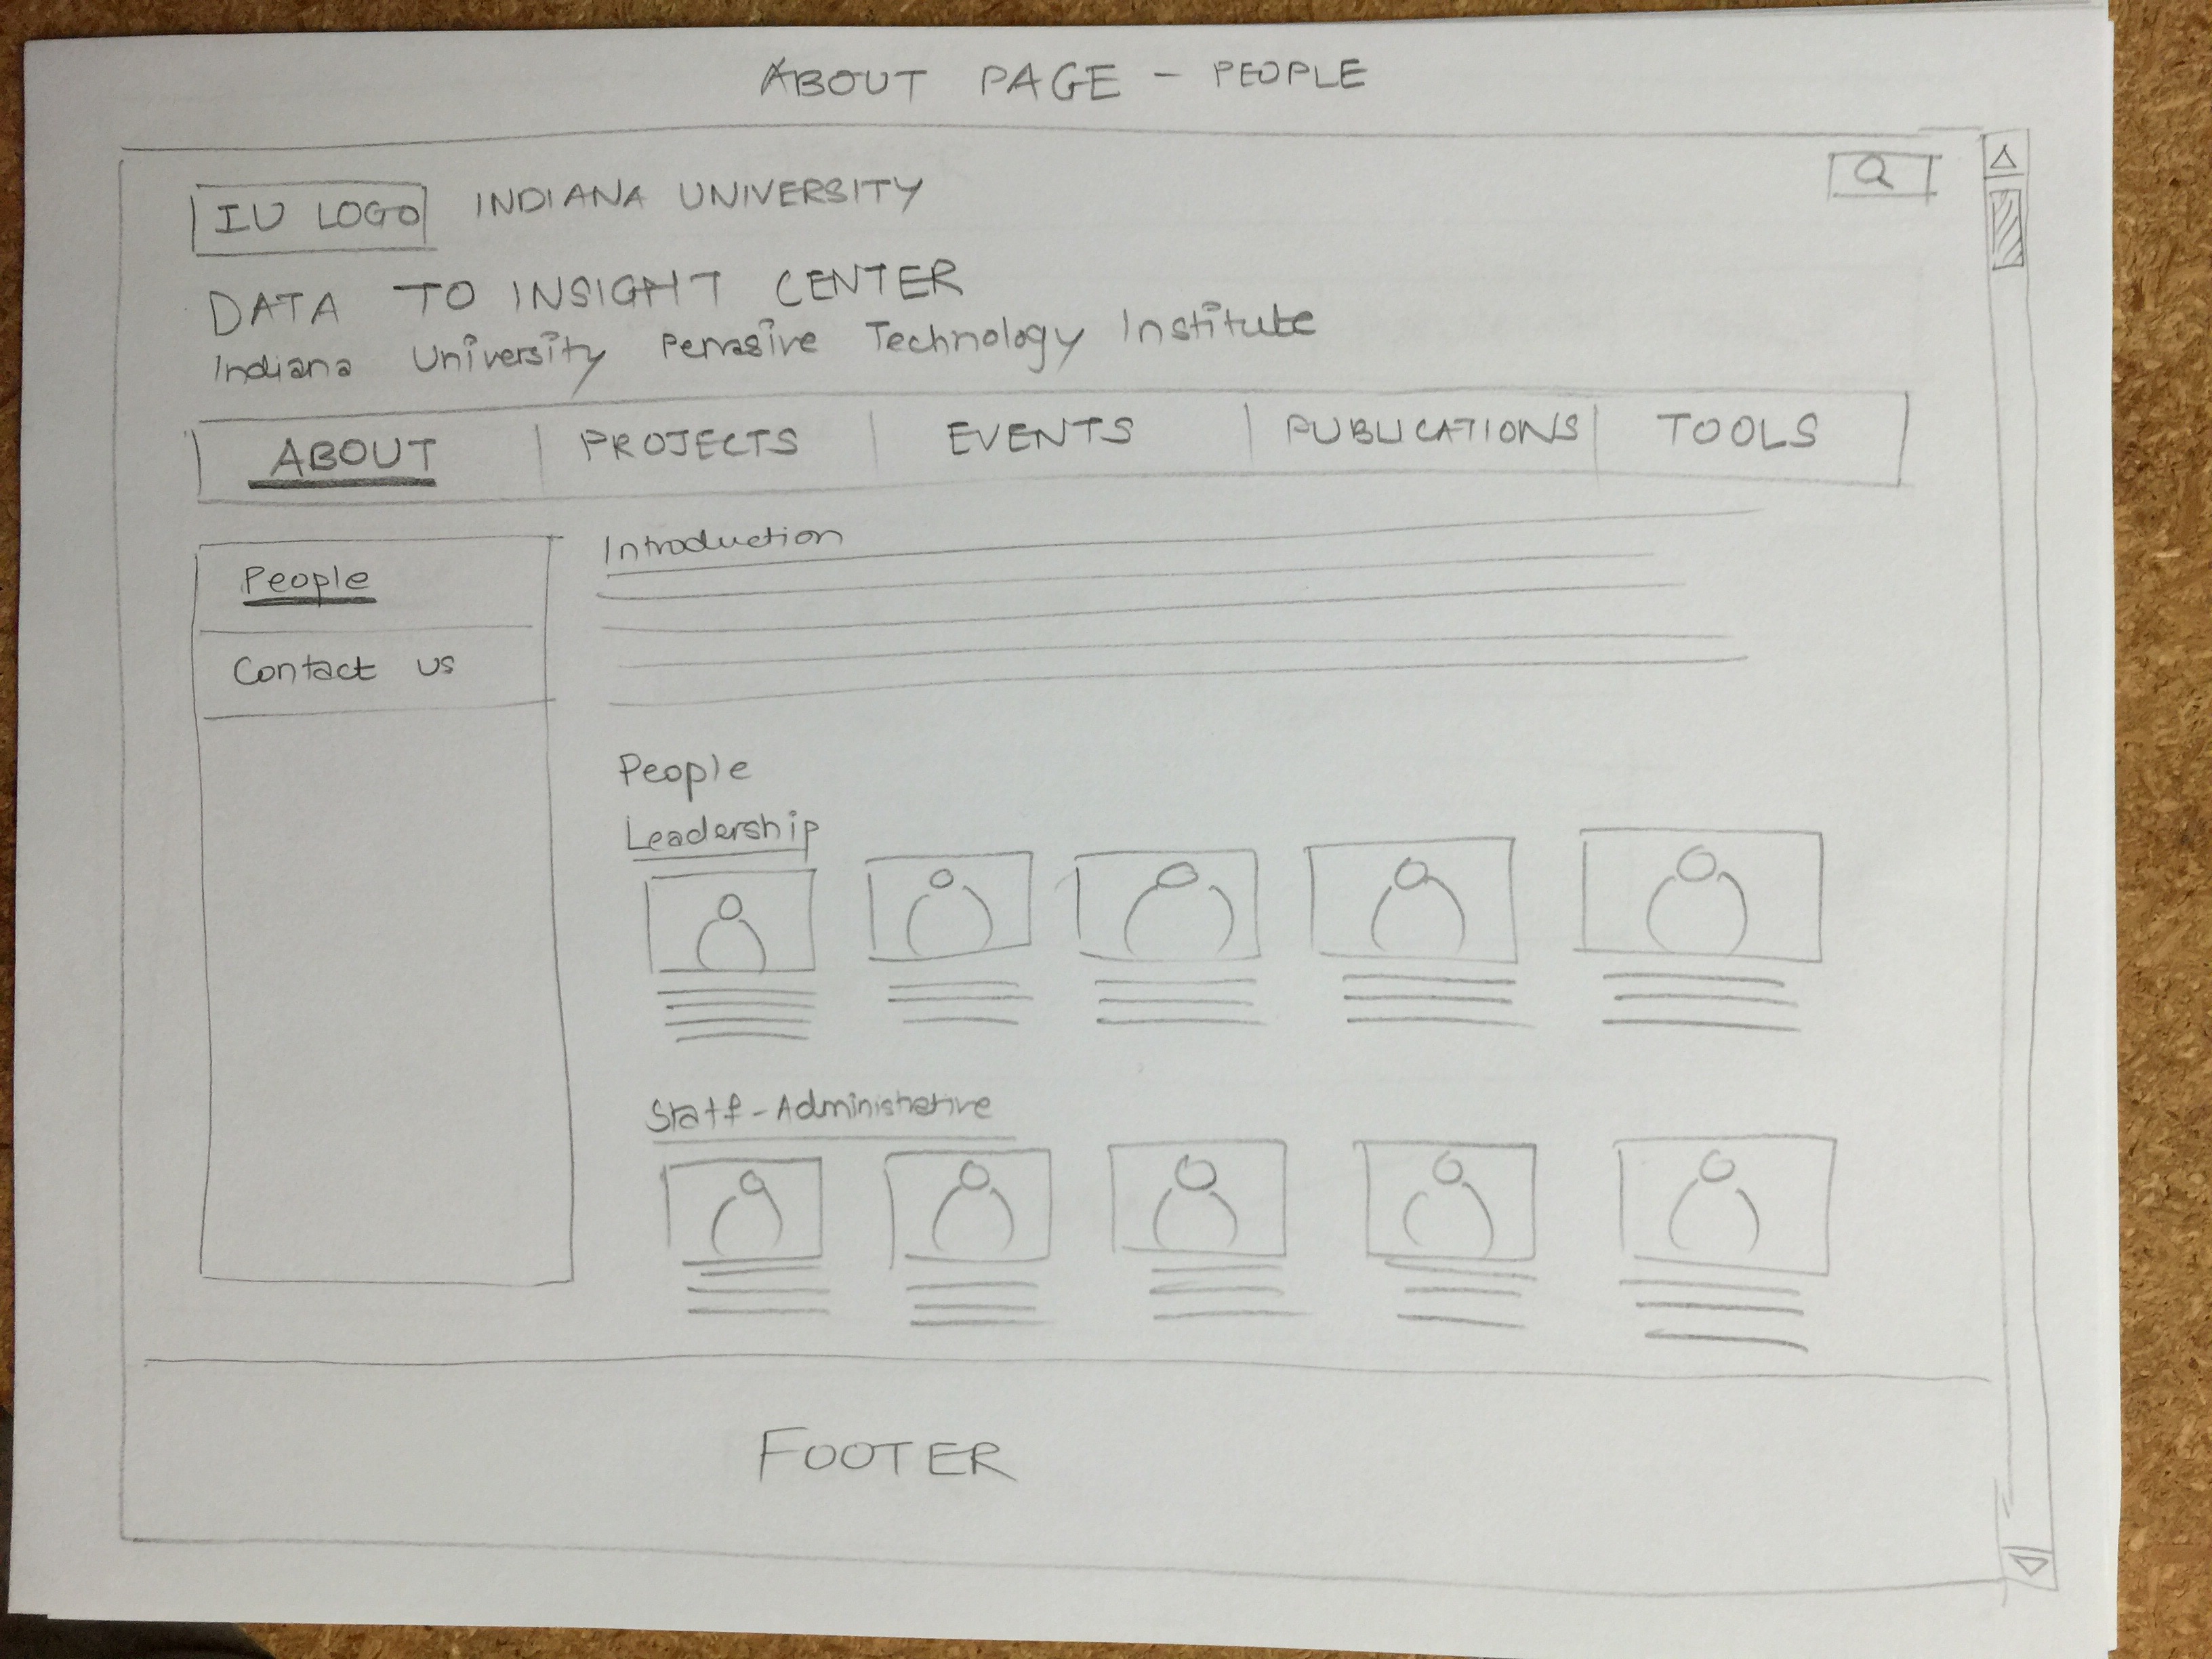 ABOUT PAGE - PEOPLE
IU LOGO INDIANA UNIVERSITY
DATA TO INSIGHT CENTER
Indiana University Pervasive Technology Institute
ABOUT PROJECTS EVENTS PUBLICATIONS TOOLS
People
Contact us
Introduction
People
Leadership
Staff - Administrative
FOOTER